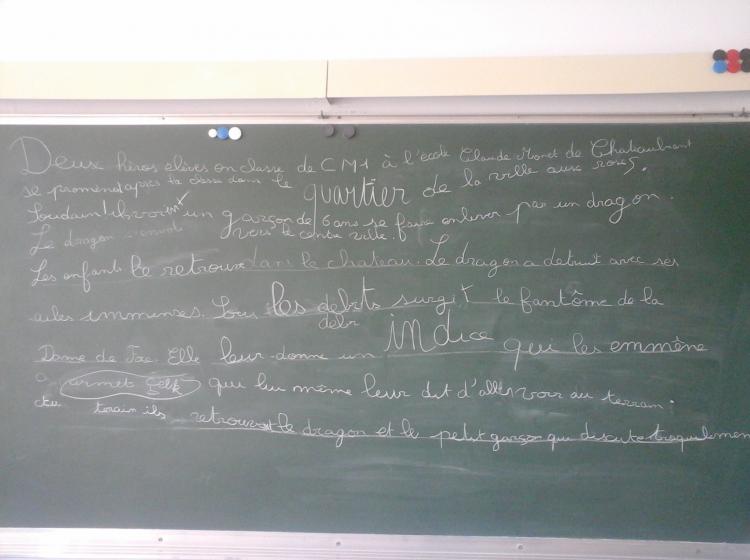 Deux héros elèves en classe de CM1 à l'école Claude Monet de Chateaubriant
se promenait après la classe dans le quartier de la ville aux roses.
Soudain ils voient un garçon de 6 ans se faire enlever par un dragon.
Le dragon vers le centre ville.
Les enfants le retrouve dans le chateau. Le dragon a detruit avec ses
ailes immenses. Sous les debrits surgit le fantôme de la
debr
Dame de Foi. Elle leur donne un indice qui les emmène
qui lui même leur dit d'aller voir au terrain.
terain ils retrouvent le dragon et le petit garçon qui discute tranquilement